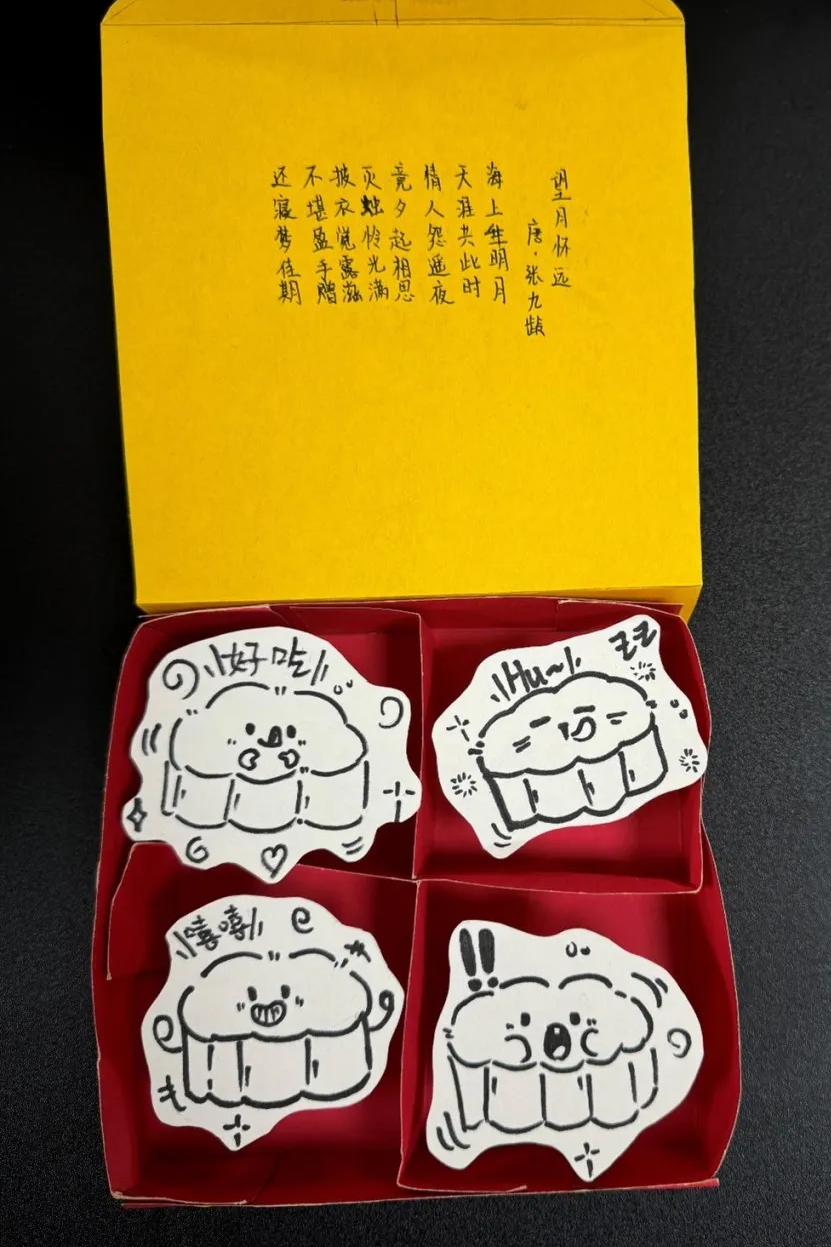 望月怀远
唐·张九龄
海上生明月
天涯共此时
情人怨遥夜
竟夕起相思
灭烛怜光满
披衣觉露滋
不堪盈手赠
还寝梦佳期
好吃
Hu~
zz
嘻嘻
!!